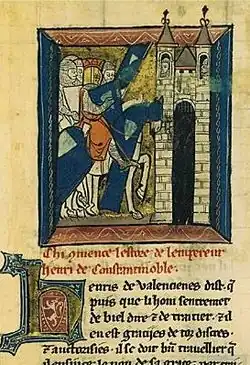 Chi comence lestoire de lempereur
henri de Constantinoble.
Henris de valencienes dist. q̃
puis que li hom sentremet
de biel dire & de traitier. & il
en est gracijes de toz discres.
& auctorisies. il se doit biẽ travellier q̃